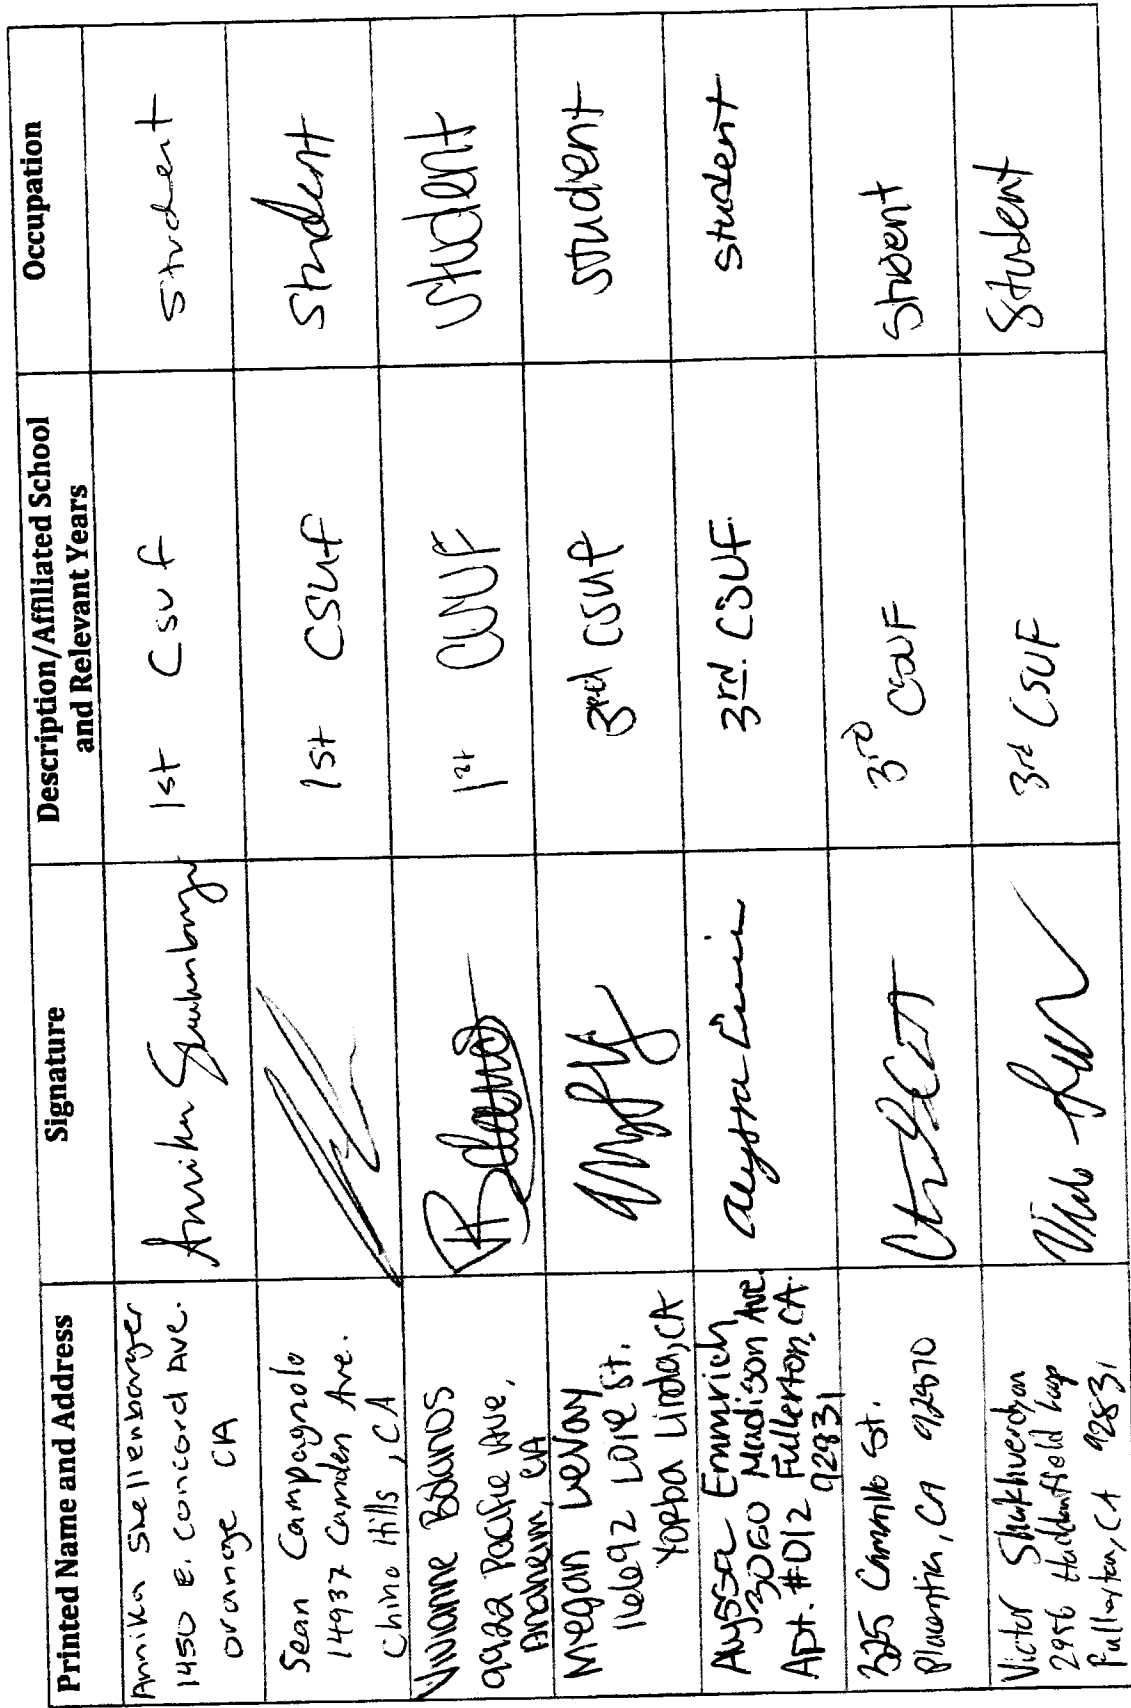 Printed Name and Address
Signature
Description/Affiliated School
and Relevant Years
Occupation
Annika Shellenbarger
1450 E. Concord Ave.
Orange CA
1st CSUF
Student
Sean Campagnolo
14937 Camden Ave.
Chino Hills, CA
1st CSUF
Student
Vivianne Bolanos
9922 Pacific Ave,
Anaheim, CA
1st CSUF
Student
Megan LeVay
Yorba Linda, CA
3rd CSUF
student
Alyssa Emmrich
3050 Madison Ave.
Apt. #D12 Fullerton, CA.
92831
Alyssa
3rd. CSUF.
student
325 Camino St.
Placentia, CA 92870
3rd CSUF
Student
Victor
Fullerton, CA 92831
3rd CSUF
Student